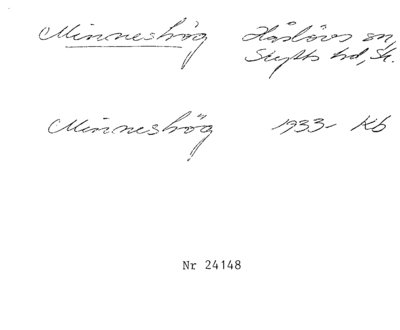 Minneshög Håslövs sn,
Skytts hd, Sk.
Minneshög 1933- Kb
Nr 24148